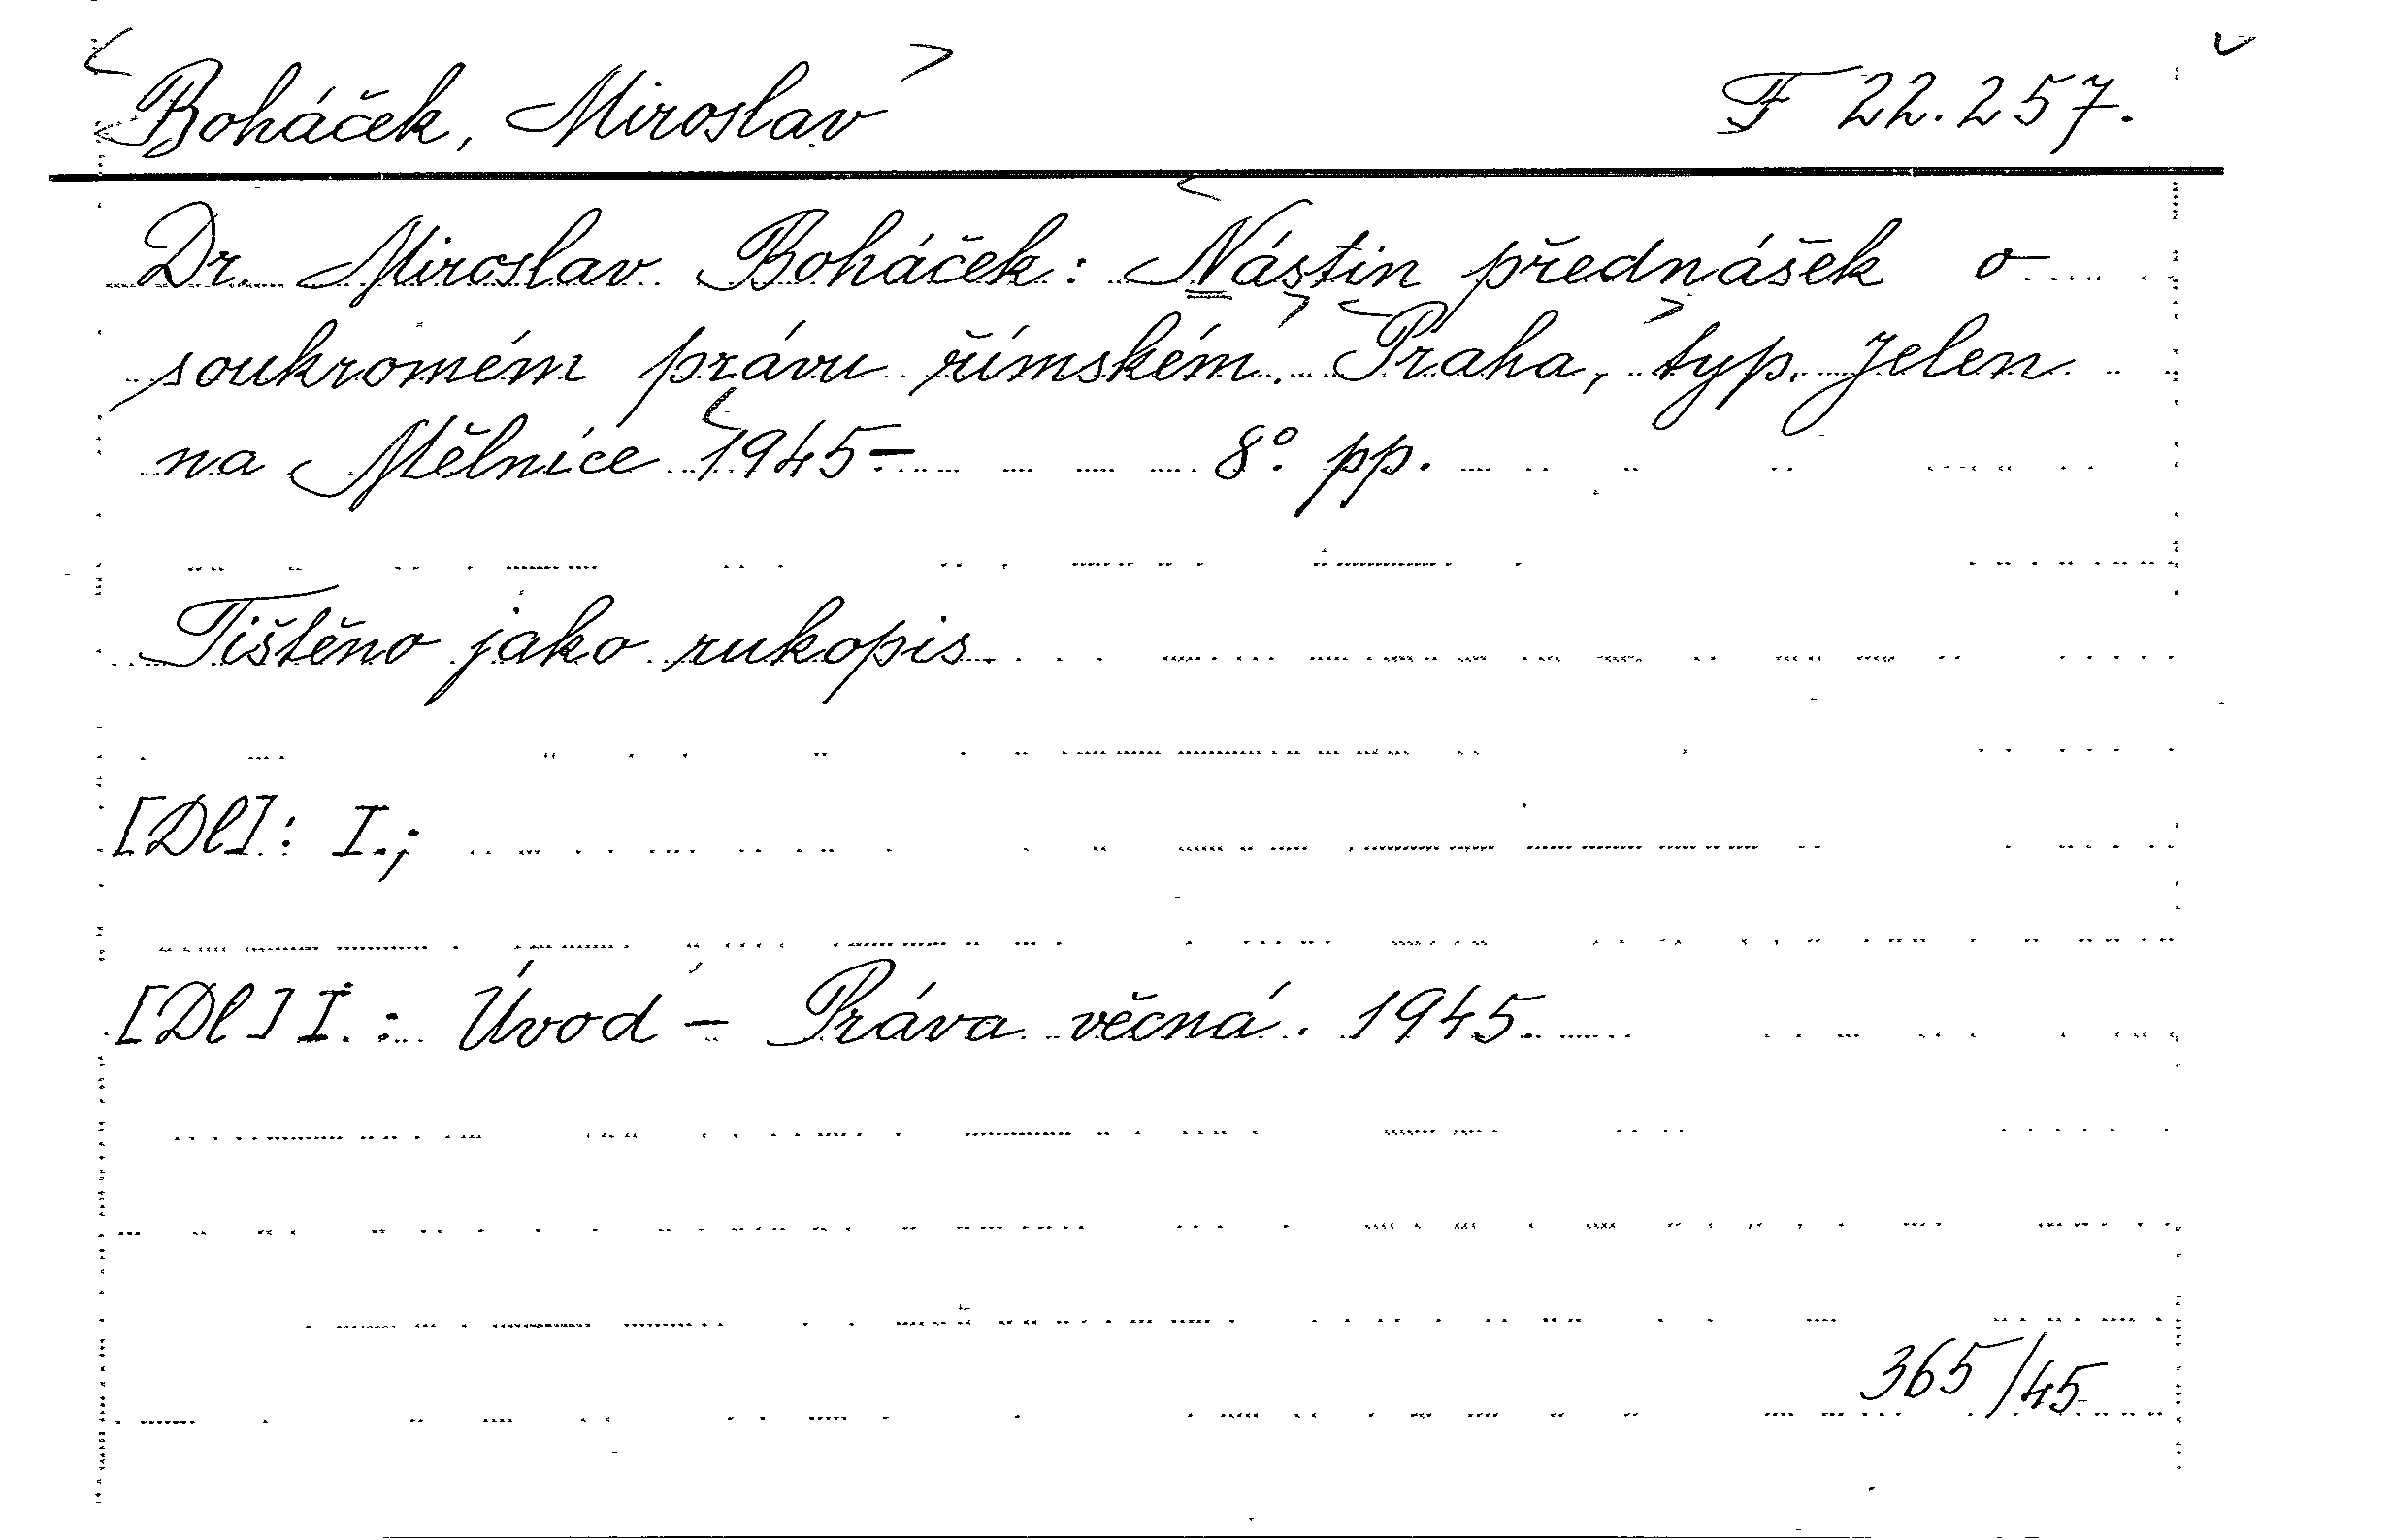 <Boháček, Miroslav> F 22.257.
Dr. Miroslav Boháček: <Nástin přednášek o
soukromém právu římském.> <Praha,> typ. Jelen
na Mělníce <1945- 8º. pp.
Tištěno jako rukopis.
[Dl]: I.;
[Dl] I.: Úvod - Práva věcná. 1945.
365/45